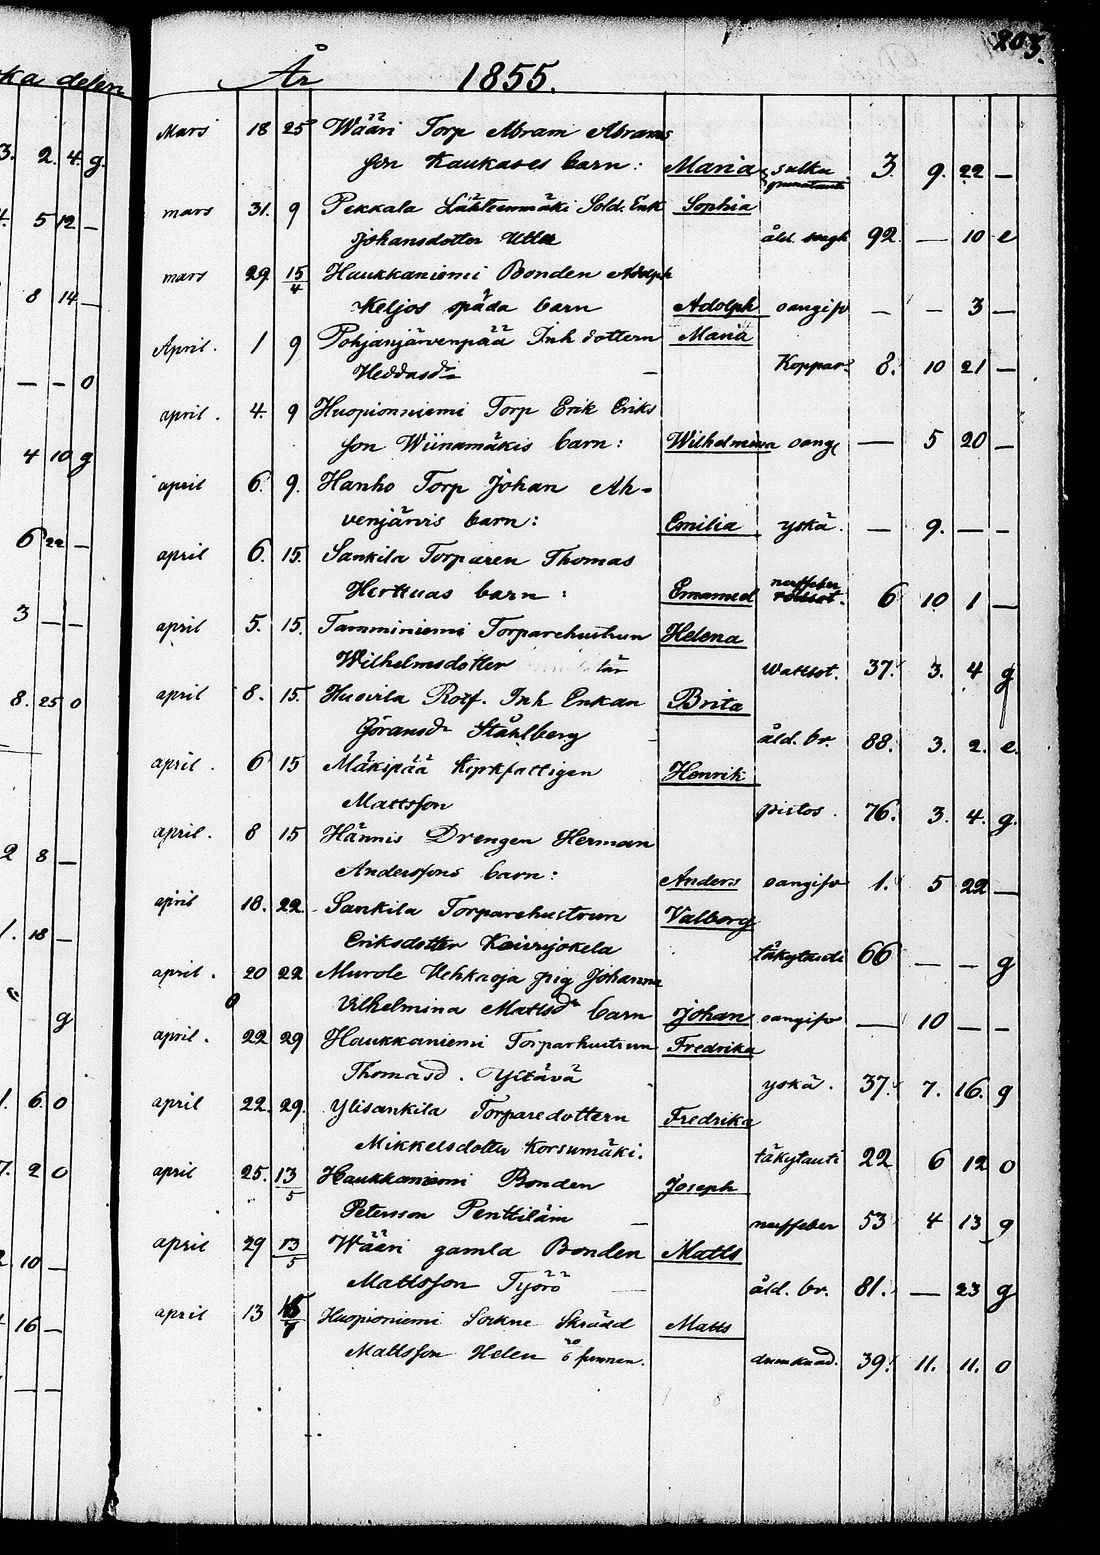 203.
ka delen
År 1855.
3. 2. 4. g.
Mars 18 25 Wääri Torp Abram Abrams
son Kaukases barn: Maria 3. 9. 22 —
5 12 —
mars 31. 9 Pekkala Lähteenmäki Sold. Enk Sophia
Johansdotter Utter åld. svagh 92 — 10 e
mars 29 15/4 Haukkaniemi Bonden Adolph
8 14 —
Keljos späda barn Adolph oangifv — — 3 —
April. 1 9 Pohjanjärvenpää Inh dottern Maria
— — 0
Heddasdr — Koppor 8. 10 21 —
april. 4. 9 Huopionniemi Torp Erik Eriks
4 10 g
son Wiinamäkis barn: Wilhelmina oang — 5 20 —
april 6. 9. Hanho Torp Johan Ah-
venjärvis barn: Emilia yskä. — 9. — —
6 22 —
april 6. 15. Sankila Torparen Thomas
Herttuas barn: Emanuel nerffeber 6 10 1 —
3 — —
april 5. 15. Tamminiemi Torparehustrun Helena
Wilhelmsdotter Wattsot. 37. 3. 4 g
8. 25 0
april 8. 15. Husvila Rotf. Inh Enkan Brita
Göransdr Ståhlberg åld. br. 88. 3. 2. e.
april. 6 15 Mäkipää Kyrkfattigen Henrik
Mattsson pistos. 76. 3. 4. g.
april. 8 15 Hännis Drengen Herman
2 8 —
Anderssons barn: Anders oangifv 1. 5 22 —
april 18. 22. Sankila Torparehustrun Valborg
1. 18 —
Eriksdotter Koivujokela täkytauti 66 — — g
april. 20 22 Murole Vehkaoja pig Johanna
Vilhelmina Mattsdr barn Johan oangifv — 10 — —
g
april. 22 29 Haukkaniemi Torparhustrun Fredrika
Thomasd. Ylitävä yskä. 37. 7. 16. g
1. 6. 0
april 22. 29. Ylisankila Torparedottern Fredrika
Mikkelsdotter Korsumäki. täkytauti 22 6 12 0
7. 2 0
april 25. 13/5 Haukkaniemi Bonden Joseph
Petersson Penttiläin — nerffeber 53 4 13 g
april 29 13/5 Wääri gamla Bonden Matts
2. 10 —
Mattsson Työrö — åld. br. 81. — 23 g
april 13 Huopioniemi Sockne Skrädd Matts
16 —
Mattsson Helen 39. 11. 11. 0
— —